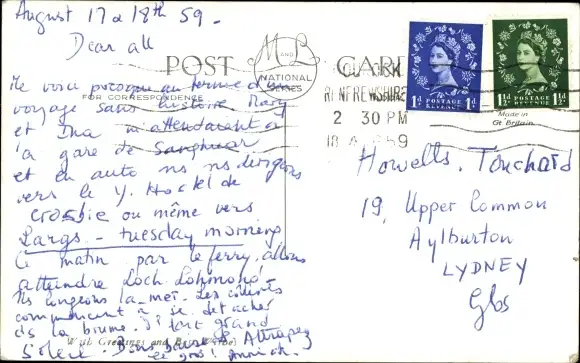 August 17 & 18th 59 -
Dear all
POST CARD
M AND L
NATIONAL SERIES
FOR CORRESPONDENCE
Me voici presque au terme d'un
voyage sans histoire Mary
et Ina m'attendaient à
la gare de
et en auto ns ns dirigeons
vers le Y. Hostel de
Crosbie ou même vers
Largs - tuesday morning
Ce matin par le ferry, allons
atteindre Loch Lohmond -
Ns longeons la mer. Les collines
commencent à se détacher
ds la brume. Si tout grand
Soleil. Bons baisers.
With Greetings
RENFREWSHIRE
2 30 PM
18 59
1D POSTAGE REVENUE 1D
1½D POSTAGE REVENUE 1½D
Made in
Gt Britain
Howells. Touchard
19, Upper Common
Aylburton
LYDNEY
Glos